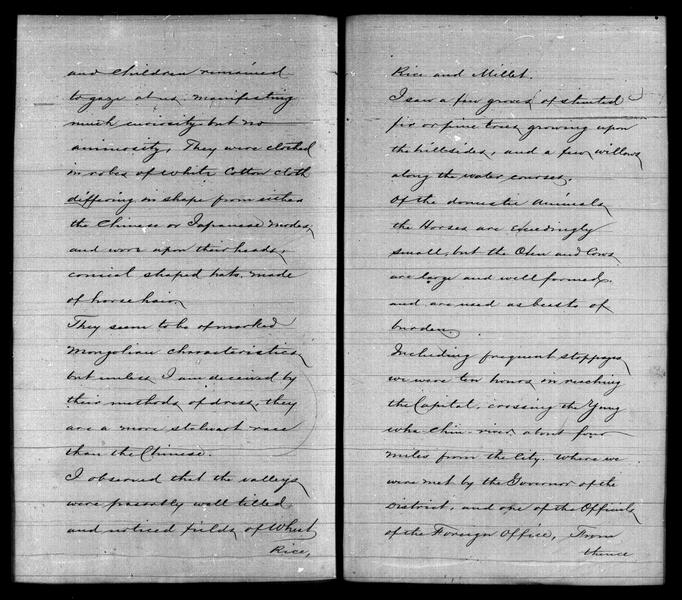 and children remained
to gaze at us. manifesting
much curiosity but no
animosity, They were clothed
in robes of White Cotton cloth
differing in shape from either
the Chinese or Japanese modes,
and wore upon their heads,
conical shaped hats. made
of horse hair,
They seem to be of marked
Mongolian characteristics,
but unless I am deceived by
their methods of dress, they
are a more stalwart race
than the Chinese.
I observed that the valleys
were passably well tilled,
and noticed fields, of Wheat
Rice,
Rice and Millet.
I saw a few groves of stunted
fir or pine trees growing upon
the hillsides, and a few willows
along the water courses.
Of the domestic animals,
the Horses are exceedingly
small, but the Oxen and Cows
are large and well formed,
and are used as beests of
burden,
Including frequent stoppages,
we were ten hours in reaching
the Capital, crossing the Yung
wha-Chin-river, about four
miles from the City. Where we
were met by the Governor of the
District, and one of the Officials,
of the Foreign Office, From
thence